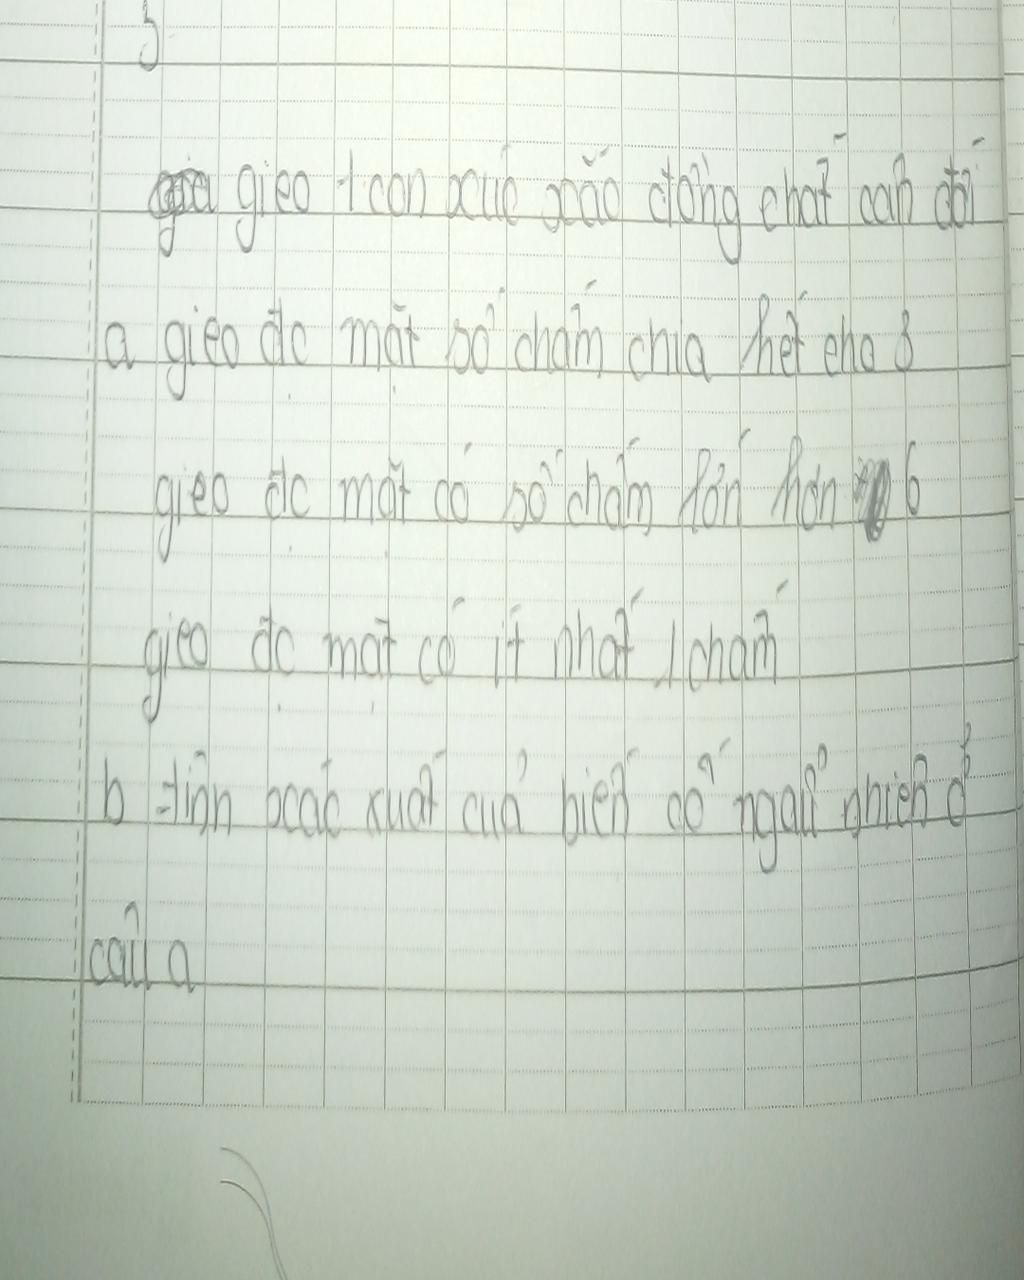 gieo 1 con xúc xắc đồng chất cân đối
a gieo đc mặt số chấm chia hết cho 3
gieo đc mặt có số chấm lớn hơn 6
gieo đc mặt có ít nhất 1 chấm
b tính xác xuất của biến cố ngẫu nhiên ở
câu a